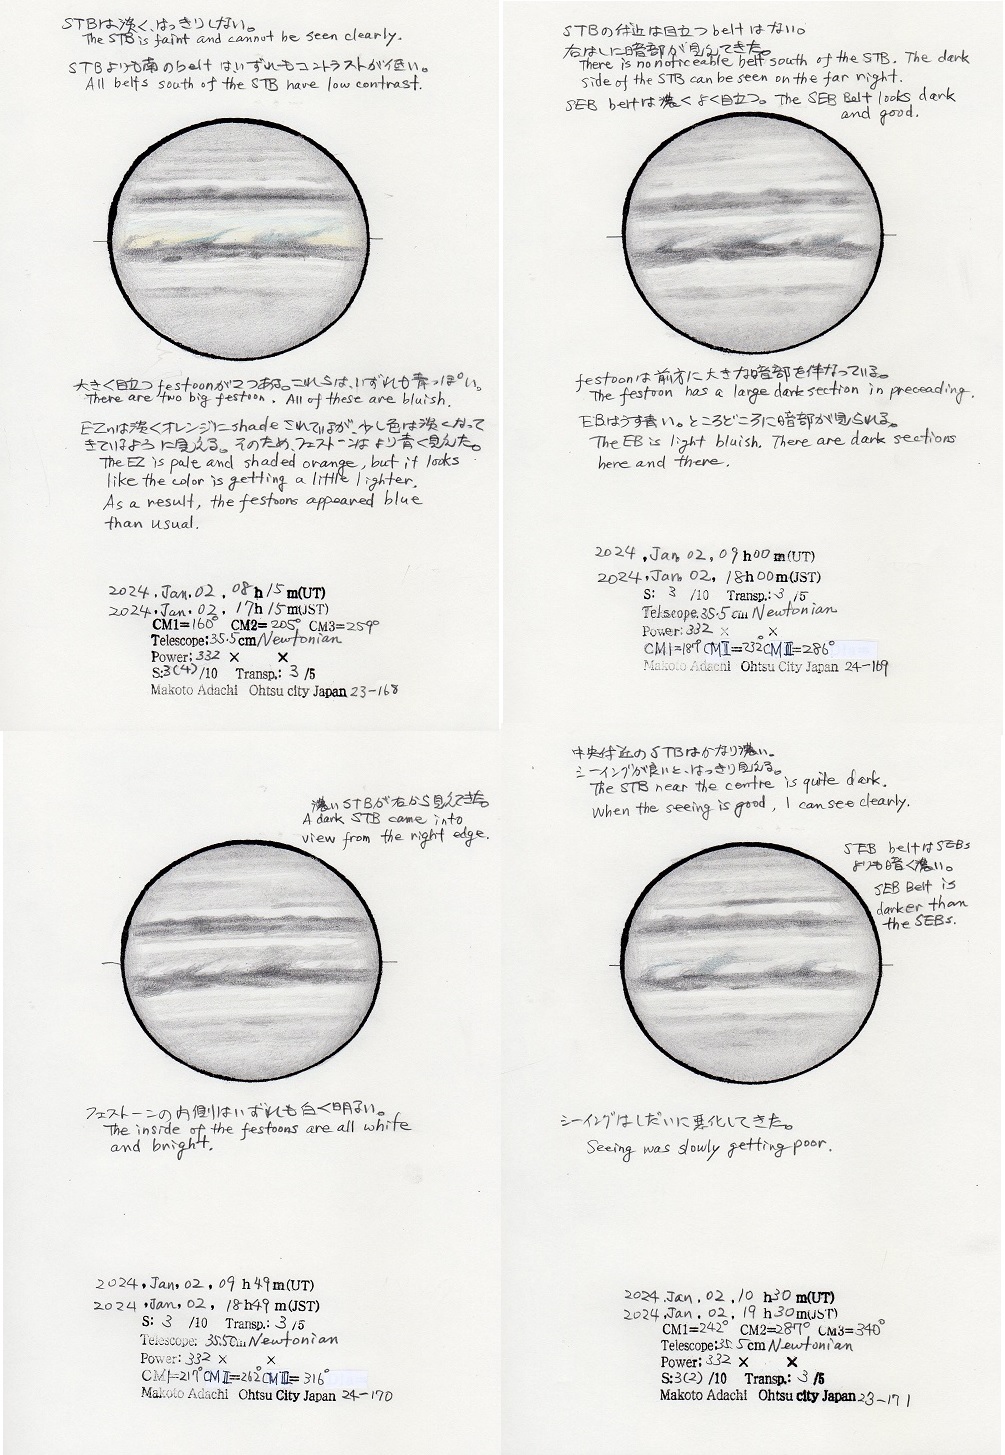 STBは淡く、はっきりしない。
The STB is faint and cannot be seen clearly.
STBよりも南のbeltはいずれもコントラストが低い。
All belts south of the STB have low contrast.
大きく目立つfestoonが2つある。これらは、いずれも青っぽい。
There are two big festoon. All of these are bluish.
EZnは淡くオレンジにshadeされているが、少し色は淡くなって
きているように見える。そのため、フェストーンはより青く見えた。
The EZ is pale and shaded orange, but it looks
like the color is getting a little lighter.
As a result, the festoons appeared blue
than usual.
2024.Jan.02, 08h15m(UT)
2024.Jan.02, 17h15m(JST)
CM1=160° CM2=205° CM3=259°
Telescope:35.5cm Newtonian
Power:332 × ×
S:3(4)/10 Transp.: 3/5
Makoto Adachi Ohtsu city Japan 23-168
STBの付近は目立つbeltはない。
右はしに暗部が見えてきた。
There is no noticeable belt south of the STB. The dark
side of the STB can be seen on the far right.
SEB beltは濃くよく目立つ。The SEB Belt looks dark
and good.
festoonは前方に大きな暗部を伴なっている。
The festoon has a large dark section in preceading.
EBはうす青い。ところどころに暗部が見られる。
The EB is light bluish. There are dark sections
here and there.
2024.Jan, 02, 09h00m(UT)
2024.Jan, 02, 18h00m(JST)
S: 3 /10 Transp.: 3/5
Telescope:35.5cm Newtonian
Power: 332 × ×
CMI=189° CMⅡ=232° CMⅢ=286°
Makoto Adachi Ohtsu City Japan 24-169
濃いSTBが右から見えてきた。
A dark STB came into
view from the right edge.
フェストーンの内側はいずれも白く明るい。
The inside of the festoons are all white
and bright.
2024.Jan.02, 09h49m(UT)
2024.Jan.02, 18h49m(JST)
S: 3 /10 Transp.: 3/5
Telescope: 35.5cm Newtonian
Power: 332 × ×
CMI=217° CMⅡ=262° CMⅢ=316°
Makoto Adachi Ohtsu City Japan 24-170
中央付近のSTBはかなり濃い。
シーイングが良いと、はっきり見える。
The STB near the centre is quite dark.
When the seeing is good, I can see clearly.
SEB beltはSEBs
よりも暗く濃い。
SEB Belt is
darker than
the SEBs.
シーイングはしだいに悪化してきた。
Seeing was slowly getting poor.
2024.Jan.02, 10h30m(UT)
2024.Jan.02, 19h30m(JST)
CM1=242° CM2=287° CM3=340°
Telescope:35.5cm Newtonian
Power:332 × ×
S:3(2)/10 Transp.: 3/5
Makoto Adachi Ohtsu city Japan 23-171